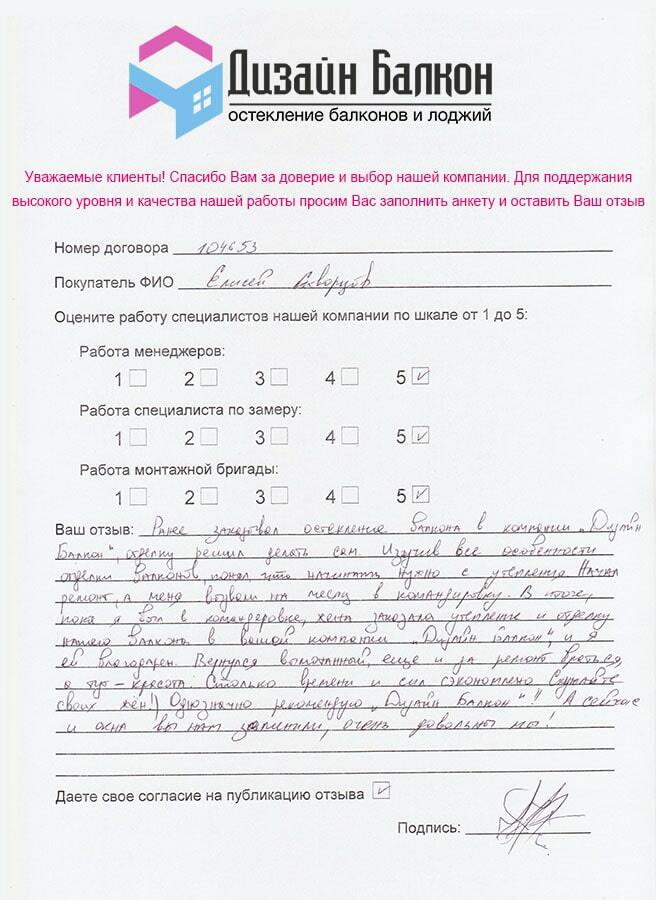 Дизайн Балкон
остекление балконов и лоджий
Уважаемые клиенты! Спасибо Вам за доверие и выбор нашей компании. Для поддержания
высокого уровня и качества нашей работы просим Вас заполнить анкету и оставить Ваш отзыв
Номер договора 104653
Покупатель ФИО Елисей Скворцов
Оцените работу специалистов нашей компании по шкале от 1 до 5:
Работа менеджеров:
1 2 3 4 5
Работа специалиста по замеру:
1 2 3 4 5
Работа монтажной бригады:
1 2 3 4 5
Ваш отзыв: Ранее заказывал остекление балкона в компании „Дизайн
Балкон“, отделку решил делать сам. Изучив все особенности
отделки балконов, понял, что начинать нужно с утепления. Начал
ремонт, а меня вызвали на месяц в командировку. В итоге,
пока я был в командировке, жена заказала утепление и отделку
нашего балкона в вашей компании „Дизайн балкон“, и я
ей благодарен. Вернулся вымотанный, еще и за ремонт браться,
а тут - красота. Столько времени и сил сэкономлено. Слушайте
своих жён!) Однозначно рекомендую „Дизайн Балкон“!! А сейчас
и окна вы нам, очень довольны мы!
Даете свое согласие на публикацию отзыва
Подпись: